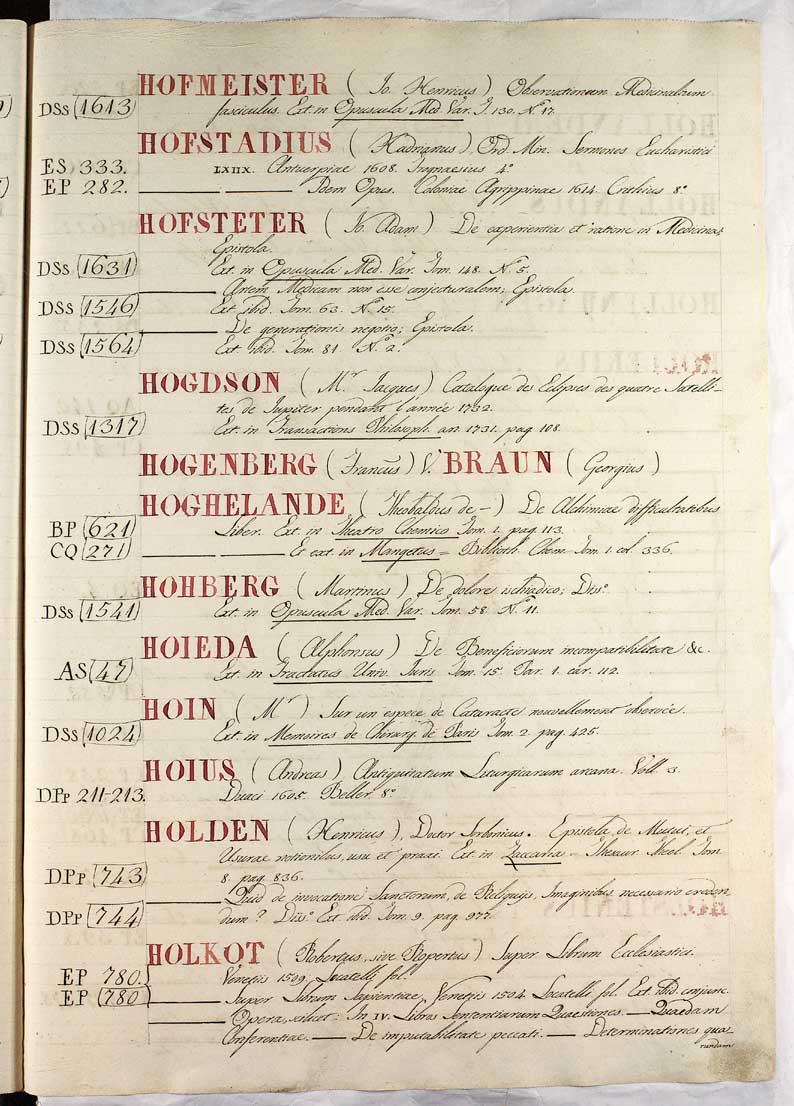 HOFMEISTER (Jo. Henricus) Observationum Medicinalium
DSs 1613 fasciculus. Ext. in Opuscula Med. Var. T. 130. N.º 17.
HOFSTADIUS (Hadrianus), Ord. Min. Sermones Eucharistici
ES 333. LXIIX. Antuerpiae 1608. Trognaesius 4º
EP 282. Idem Opus. Coloniae Agrippinae 1614. Crithius 8º
HOFSTETER (Jo. Adam) De experientia et ratione in Medicina;
Epistola.
DSs 1631 Ext. in Opuscula Med. Var. Tom. 148. N.º 5.
Artem Medicam non esse conjecturalem; Epistola.
DSs 1546 Ext. ibid. Tom. 63. N.º 15.
De generationis negotio; Epistola.
DSs 1564 Ext. ibid. Tom. 81. N.º 2.
HOGDSON (Mr. Jacques) Catalogue des Eclipses des quatre Satelli-
tes de Jupiter pendant l'année 1732.
DSs 1317 Ext. in Transactions Philosoph. an. 1731. pag. 108.
HOGENBERG (Francus) V. BRAUN (Georgius)
HOGHELANDE (Theobaldus de -) De Alchimiae difficultatibus
BP 621 Liber. Ext. in Theatro Chemico Tom. 1. pag. 113.
CQ 271 Et ext. in Mangetus = Biblioth. Chem. Tom. 1. col. 336.
HOHBERG (Martinus) De dolore ischiadico; Diss.º
DSs 1541 Ext. in Opuscula Med. Var. Tom. 58. N.º 11.
HOIEDA (Alphonsus) De Beneficiorum incompatibilitate &c.
AS 47 Ext. in Tractatus Univ. Juris Tom. 15. Par. 1. car. 112.
HOIN (Mr) Sur un espece de Cataracte nouvellement observée.
DSs 1024 Ext. in Memoires de Chirurg. de Paris Tom. 2. pag. 425.
HOIUS (Andreas) Antiquitatum Liturgicarum arcana. Voll. 3.
DPp 211-213. Duaci 1605. Beller. 8º
HOLDEN (Henricus), Doctor Sorbonicus. Epistola, de Mutui, et
Usurae notionibus, usu et praxi. Ext. in Zaccaria = Thesaur. Theol. Tom.
DPp 743 8. pag. 836.
Quid de invocatione Sanctorum, de Reliquijs, Imaginibus necessario creden-
DPp 744 dum? Diss.º Ext. ibid. Tom. 9. pag. 977.
HOLKOT (Robertus, sive Ropertus) Super Librum Ecclesiastici.
EP 780. Venetiis 1509. Locatelli fol.
EP 780 Super Librum Sapientiae, Venetiis 1504 Locatelli fol. Ext. ibid. conjunc.
Opera, scilicet: In IV. Libros Sententiarum Quaestiones. — Quaedam
Conferentiae. — De imputabilitate peccati. — Determinationes qua-
rundam